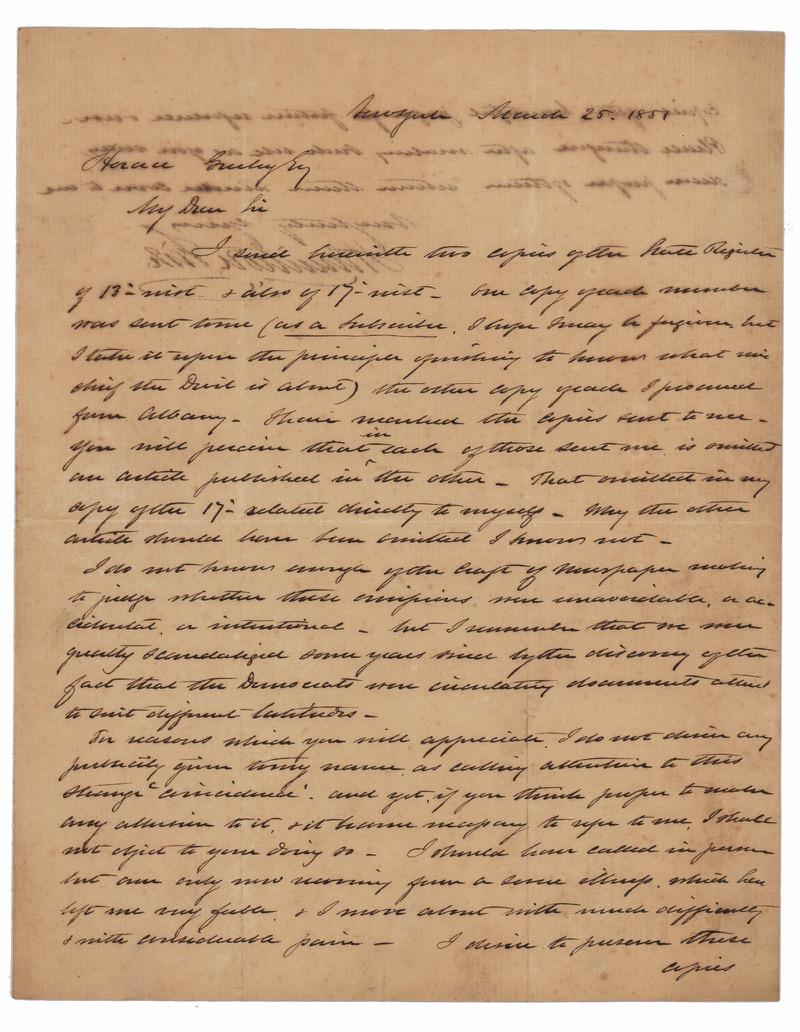 New York March 25. 1851
Horace Greeley Esq
My Dear Sir
I send herewith two copies of the State Register
of 13th inst & also of 17th inst - One copy of each number
was sent to me (as a Subscriber, I hope I may be forgiven, but
I take it upon the principle of wishing to know what mis
chief the Devil is about) the other copy of each I procured
from Albany - I have marked the copies sent to me -
You will perceive that in each of those sent me is omitted
an article published in the other - That omitted in my
copy of the 17th related directly to myself - Why the other
article should have been omitted I know not -
I do not know enough of the Craft of Newspaper making
to judge whether these omissions were unavoidable, or ac-
cidental, or intentional - but I remember that we were
greatly scandalized some years since by the discovery of the
fact that the Democrats were circulating documents altered
to suit different latitudes -
For reasons which you will appreciate, I do not desire any
publicity given to my name, as calling attention to this
strange 'coincidence'. and yet, if you think proper to make
any allusion to it, & it became necessary to refer to me, I shall
not object to your doing so - I should have called in person
but am only now recovering from a severe illness, which has
left me very feeble, & I move about with much difficulty
& with considerable pain - I desire to preserve these
copies